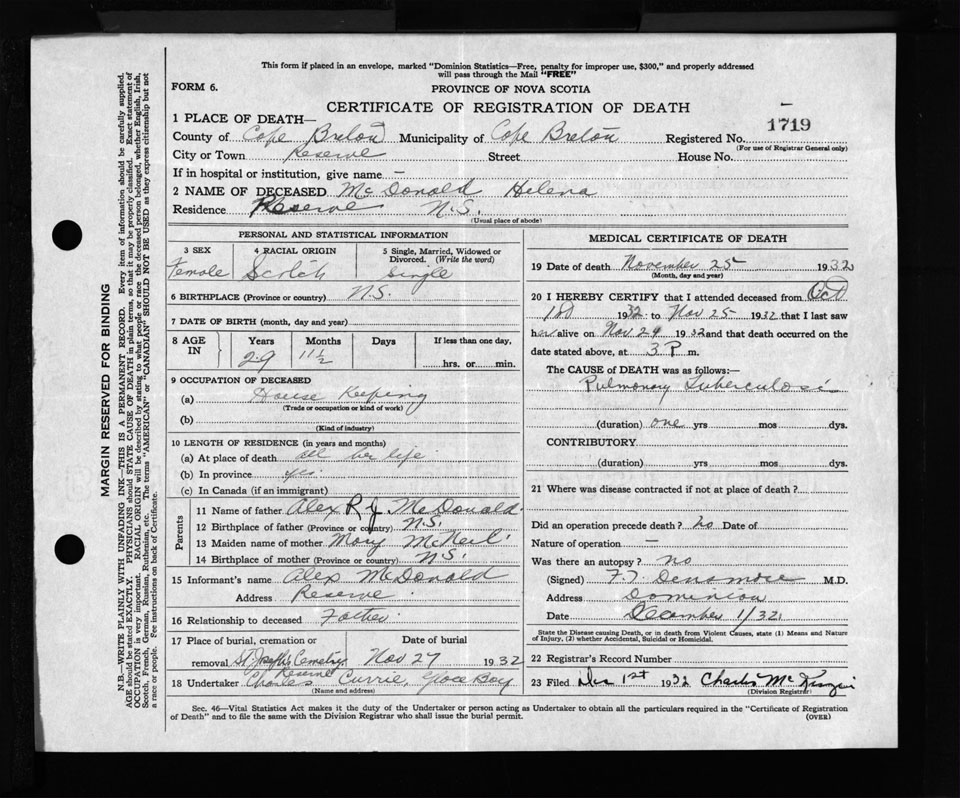 This form if placed in an envelope, marked "Dominion Statistics—Free, penalty for improper use, $300," and properly addressed
will pass through the Mail "FREE"
FORM 6.
PROVINCE OF NOVA SCOTIA
CERTIFICATE OF REGISTRATION OF DEATH
1719
1 PLACE OF DEATH—
County of Cape Breton Municipality of Cape Breton Registered No.
(For use of Registrar General only)
City or Town Reserve Street House No.
If in hospital or institution, give name —
2 NAME OF DECEASED McDonald Helena
Residence Reserve N.S.
(Usual place of abode)
PERSONAL AND STATISTICAL INFORMATION
3 SEX 4 RACIAL ORIGIN 5 Single, Married, Widowed or
Divorced. (Write the word)
Female Scotch Single
6 BIRTHPLACE (Province or country) N.S.
7 DATE OF BIRTH (month, day and year)
8 AGE IN Years Months Days If less than one day,
29 11½ hrs. or min.
9 OCCUPATION OF DECEASED
(a) House Keeping
(Trade or occupation or kind of work)
(b)
(Kind of industry)
10 LENGTH OF RESIDENCE (in years and months)
(a) At place of death all her life
(b) In province yes
(c) In Canada (if an immigrant)
Parents
11 Name of father Alex R J McDonald
12 Birthplace of father (Province or country) N.S.
13 Maiden name of mother Mary McNeil
14 Birthplace of mother (Province or country) N.S.
15 Informant's name Alex McDonald
Address Reserve
16 Relationship to deceased Father
17 Place of burial, cremation or Date of burial
removal St Joseph's Cemetry Nov 27 1932
Reserve
18 Undertaker Charles Currie, Glace Bay
(Name and address)
MEDICAL CERTIFICATE OF DEATH
19 Date of death November 25 1932
(Month, day and year)
20 I HEREBY CERTIFY that I attended deceased from Oct
1932 to Nov 25 1932 that I last saw
her alive on Nov 24 1932 and that death occurred on the
date stated above, at 3 P m.
The CAUSE of DEATH was as follows:—
Pulmonary Tuberculosis
(duration) one yrs mos dys.
CONTRIBUTORY
(duration) yrs. mos. dys.
21 Where was disease contracted if not at place of death?
Did an operation precede death? no Date of
Nature of operation —
Was there an autopsy? no
(Signed) F.T. Densmore M.D.
Address Dominion
Date December 1/32
State the Disease causing Death, or in death from Violent Causes, state (1) Means and Nature
of Injury, (2) whether Accidental, Suicidal or Homicidal.
22 Registrar's Record Number
23 Filed Dec 1st 1932 Charles Mc
(Division Registrar)
Sec. 46—Vital Statistics Act makes it the duty of the Undertaker or person acting as Undertaker to obtain all the particulars required in the "Certificate of Registration
of Death" and to file the same with the Division Registrar who shall issue the burial permit. (OVER)
MARGIN RESERVED FOR BINDING
N.B.—WRITE PLAINLY WITH UNFADING INK—THIS IS A PERMANENT RECORD. Every item of information should be carefully supplied.
AGE should be stated EXACTLY. PHYSICIANS should STATE CAUSE OF DEATH in plain terms, so that it may be properly classified. Exact statement of
OCCUPATION is very important. RACIAL ORIGIN will be described by stating to what people or race the deceased person belonged, whether English, Irish,
Scotch, French, German, Russian, Ruthenian, etc. The terms "AMERICAN" or "CANADIAN" SHOULD NOT BE USED as they express citizenship but not
a race or people. See instructions on back of Certificate.